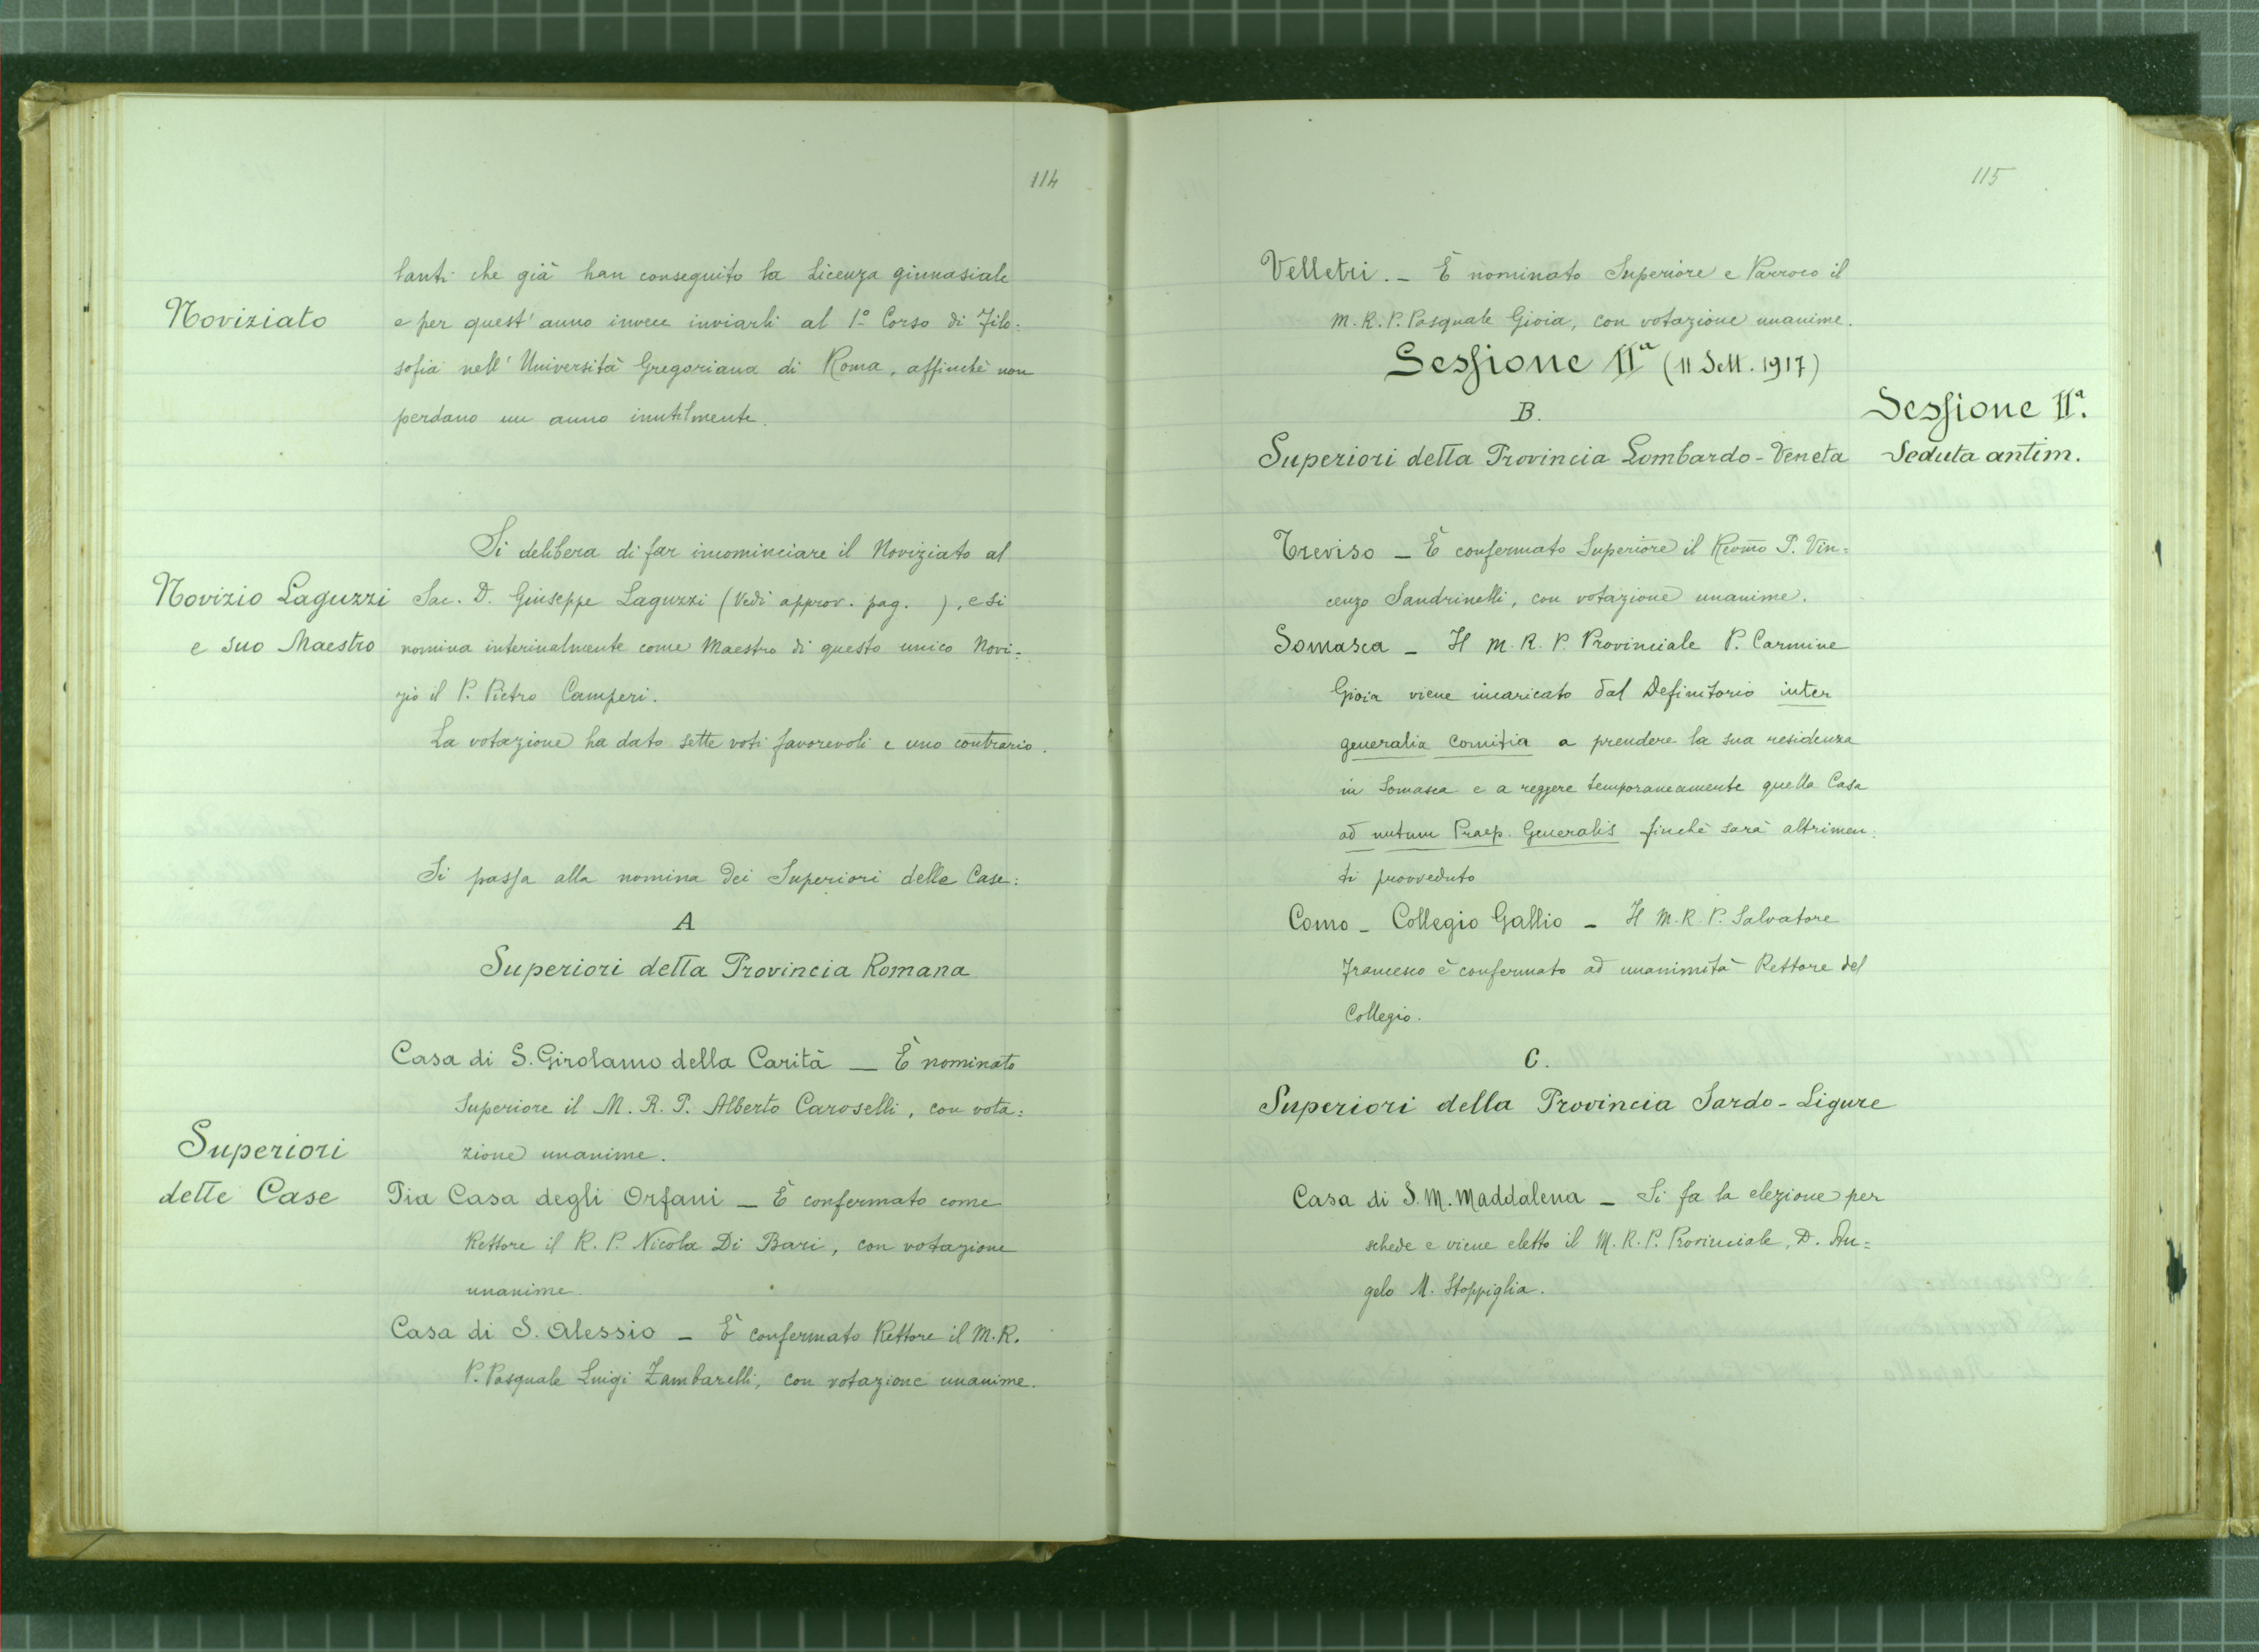 114
lanti che già han conseguito la Licenza ginnasiale
Noviziato
e per quest'anno invece inviarli al 1º Corso di Filo=
sofia nell'Università Gregoriana di Roma, affinchè non
perdano un anno inutilmente.
Si delibera di far incominciare il Noviziato al
Novizio Laguzzi
e suo Maestro
Sac. D. Giuseppe Laguzzi (Vedi approv. pag. ), e si
nomina interinalmente come Maestro di questo unico Novi=
zio il P. Pietro Camperi.
La votazione ha dato sette voti favorevoli e uno contrario.
Si passa alla nomina dei Superiori delle Case:
A
Superiori della Provincia Romana
Casa di S. Girolamo della Carità — È nominato
Superiore il M. R. P. Alberto Caroselli, con vota=
zione unanime.
Superiori
delle Case
Pia Casa degli Orfani — È confermato come
Rettore il R. P. Nicola Di Bari, con votazione
unanime.
Casa di S. Alessio — È confermato Rettore il M. R.
P. Pasquale Luigi Zambarelli, con votazione unanime.
115
Velletri. — È nominato Superiore e Parroco il
M. R. P. Pasquale Gioia, con votazione unanime.
Sessione IIª (11 Sett. 1917)
B.
Sessione IIª.
Seduta antim.
Superiori della Provincia Lombardo-Veneta
Treviso — È confermato Superiore il Revmo P. Vin=
cenzo Sandrinelli, con votazione unanime.
Somasca — Il M. R. P. Provinciale P. Carmine
Gioia viene incaricato dal Definitorio inter
generalia comitia a prendere la sua residenza
in Somasca e a reggere temporaneamente quella Casa
ad nutum Praep. Generalis finchè sarà altrimen=
ti provveduto
Como — Collegio Gallio — Il M. R. P. Salvatore
Francesco è confermato ad unanimità Rettore del
Collegio.
C.
Superiori della Provincia Sardo-Ligure
Casa di S. M. Maddalena — Si fa la elezione per
schede e viene eletto il M. R. P. Provinciale, D. An=
gelo M. Stoppiglia.